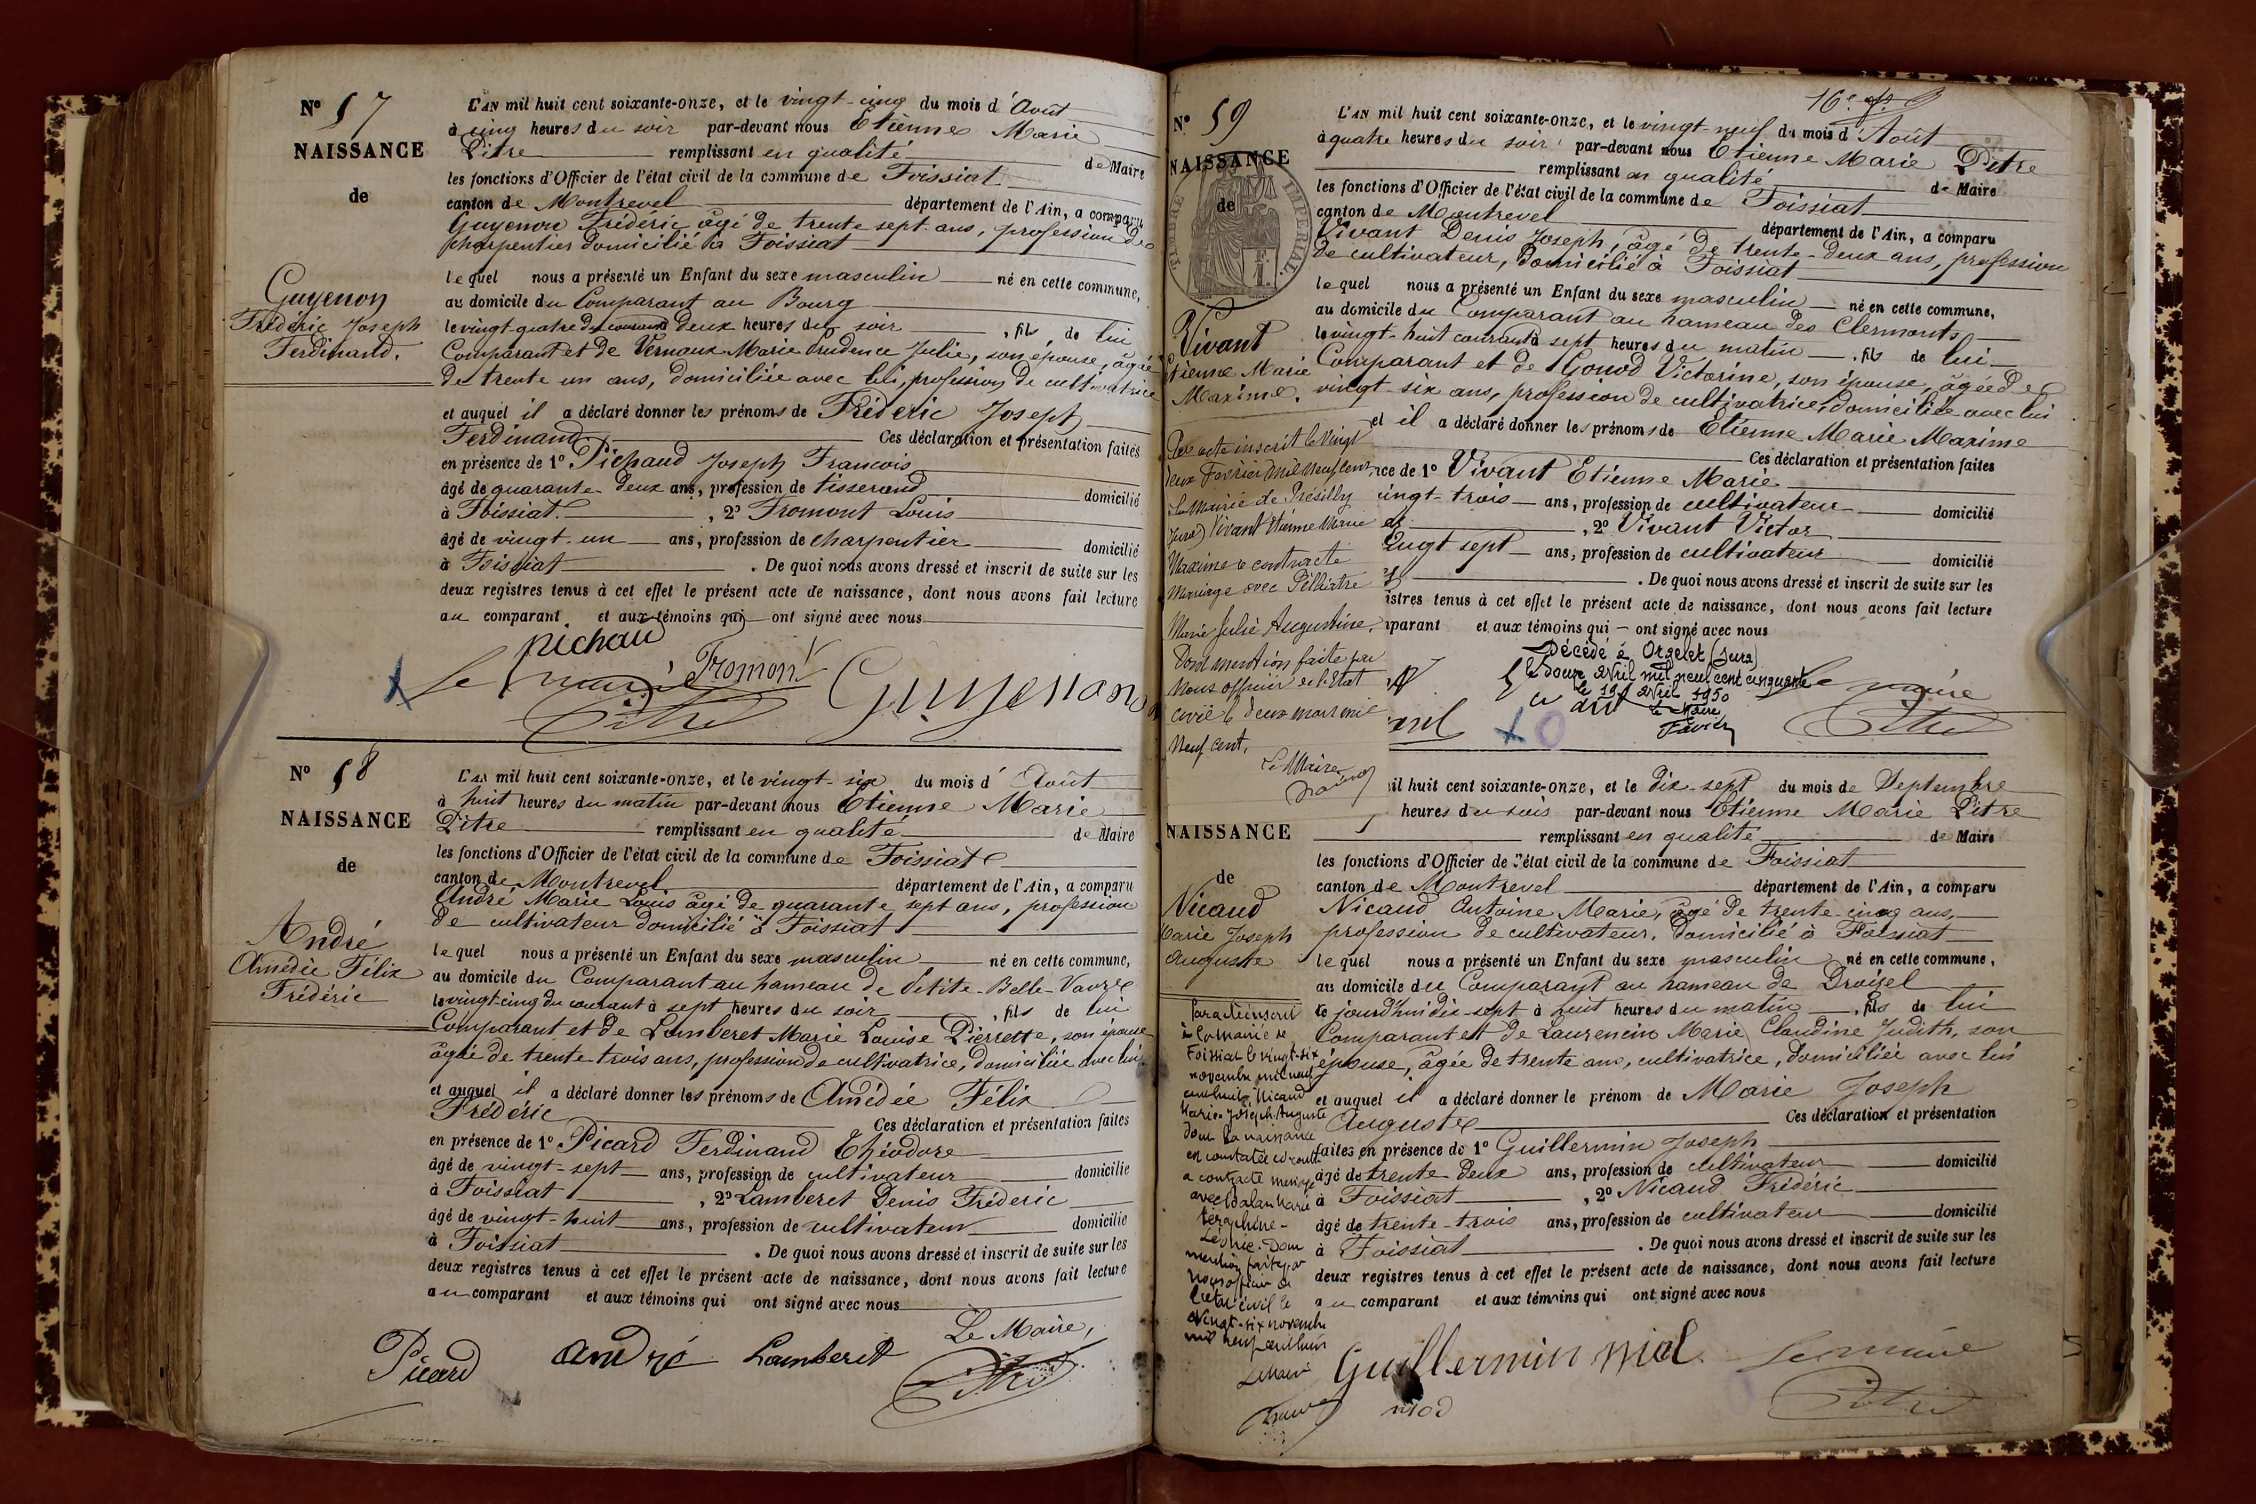 N° 57
NAISSANCE
de
Guyenon
Frédéric Joseph
Ferdinand.
L'AN mil huit cent soixante-onze, et le vingt-cinq du mois d'Août
à cinq heures du soir par-devant nous Etienne Marie
Pitre remplissant en qualité de Maire
les fonctions d'Officier de l'état civil de la commune de Foissiat
canton de Montrevel département de l'Ain, a comparu
Guyenon Frédéric âgé de trente sept ans, profession de
charpentier domicilié à Foissiat
lequel nous a présenté un Enfant du sexe masculin né en cette commune,
au domicile du Comparant au Bourg
le vingt-quatre du courant à deux heures du soir, fils de lui
Comparant et de Vernoux Marie Prudence Julie, son épouse, âgée
de trente un ans, domiciliée avec lui, profession de cultivatrice
et auquel il a déclaré donner les prénoms de Fréderic Joseph
Ferdinand Ces déclaration et présentation faites
en présence de 1° Pichaud Joseph François
âgé de quarante-deux ans, profession de tisserand domicilié
à Foissiat, 2° Fromont Louis
âgé de vingt-un ans, profession de charpentier domicilié
à Foissiat. De quoi nous avons dressé et inscrit de suite sur les
deux registres tenus à cet effet le présent acte de naissance, dont nous avons fait lecture
au comparant et aux témoins qui ont signé avec nous
pichau Fromont
Le maire Guyenon
Pitre
N° 58
NAISSANCE
de
André
Amédée Félix
Frédéric
L'AN mil huit cent soixante-onze, et le vingt-six du mois d'Août
à huit heures du matin par-devant nous Etienne Marie
Pitre remplissant en qualité de Maire
les fonctions d'Officier de l'état civil de la commune de Foissiat
canton de Montrevel département de l'Ain, a comparu
André Marie Louis âgé de quarante sept ans, profession
de cultivateur domicilié à Foissiat
lequel nous a présenté un Enfant du sexe masculin né en cette commune,
au domicile du Comparant au hameau de Petite-Belle-Vavre
le vingt-cinq du courant à sept heures du soir, fils de lui
Comparant et de Lamberet Marie Louise Pierrette, son épouse
âgée de trente trois ans, profession de cultivatrice, domiciliée avec lui
et auquel il a déclaré donner les prénoms de Amédée Félix
Frédéric Ces déclaration et présentation faites
en présence de 1° Picard Ferdinand Théodore
âgé de vingt-sept ans, profession de cultivateur domicilié
à Foissiat, 2° Lamberet Denis Fréderic
âgé de vingt-huit ans, profession de cultivateur domicilié
à Foissiat. De quoi nous avons dressé et inscrit de suite sur les
deux registres tenus à cet effet le présent acte de naissance, dont nous avons fait lecture
au comparant et aux témoins qui ont signé avec nous
Le Maire,
Picard andré Lamberet Pitre
16e
N° 59
NAISSANCE
de
TIMBRE IMPERIAL
Vivant
Etienne Marie
Maxime.
Par acte inscrit le vingt
deux Février mil neuf cent
à la Mairie de Présilly
(Jura) Vivant Etienne Marie
Maxime a contracté
mariage avec
Marie Julie Augustine.
Dont mention faite par
Nous officier de l'Etat
civil le deux mars mil
neuf cent.
Le Maire
L'AN mil huit cent soixante-onze, et le vingt-neuf du mois d'Août
à quatre heures du soir par-devant nous Etienne Marie Pitre
remplissant en qualité de Maire
les fonctions d'Officier de l'état civil de la commune de Foissiat
canton de Montrevel département de l'Ain, a comparu
Vivant Denis Joseph, âgé de trente-deux ans, profession
de cultivateur, domicilié à Foissiat
lequel nous a présenté un Enfant du sexe masculin né en cette commune,
au domicile du Comparant au hameau des Clermonts
le vingt-huit courant à sept heures du matin, fils de lui
Comparant et de Gonod Victorine, son épouse, âgée de
vingt-six ans, profession de cultivatrice, domiciliée avec lui
et il a déclaré donner les prénoms de Etienne Marie Maxime
Ces déclaration et présentation faites
nce de 1° Vivant Etienne Marie
ingt-trois ans, profession de cultivateur domicilié
at, 2° Vivant Victor
vingt sept ans, profession de cultivateur domicilié
. De quoi nous avons dressé et inscrit de suite sur les
istres tenus à cet effet le présent acte de naissance, dont nous avons fait lecture
parant et aux témoins qui ont signé avec nous
Décédé à Orgelet (Jura)
le douze Avril mil neuf cent cinquante
le 19 Avril 1950
Le Maire
Le maire
Pitre
NAISSANCE
de
Nicaud
Marie Joseph
Auguste
Par acte inscrit
à la mairie de
Foissiat le vingt-six
novembre mil neuf
cent huit, Nicaud
Marie-Joseph Auguste
dont la naissance
est constatée ci-contre
a contracté mariage
avec
Dont
mention faite par
Nous officier de
l'état civil le
vingt-six novembre
mil neuf cent huit
Le Maire
il huit cent soixante-onze, et le dix-sept du mois de Septembre
heures du soir par-devant nous Etienne Marie Pitre
remplissant en qualité de Maire
les fonctions d'Officier de l'état civil de la commune de Foissiat
canton de Montrevel département de l'Ain, a comparu
Nicaud Antoine Marie, âgé de trente-cinq ans,
profession de cultivateur, domicilié à Foissiat
lequel nous a présenté un Enfant du sexe masculin né en cette commune,
au domicile du Comparant au hameau de Droisel
ce jourd'hui dix-sept à huit heures du matin, fils de lui
Comparant et de Laurencin Marie Claudine Judith, son
épouse, âgée de trente ans, cultivatrice, domiciliée avec lui
et auquel il a déclaré donner le prénom de Marie Joseph
Auguste Ces déclaration et présentation
faites en présence de 1° Guillermin Joseph
âgé de trente-deux ans, profession de cultivateur domicilié
à Foissiat, 2° Nicaud Frédéric
âgé de trente-trois ans, profession de cultivateur domicilié
à Foissiat. De quoi nous avons dressé et inscrit de suite sur les
deux registres tenus à cet effet le présent acte de naissance, dont nous avons fait lecture
au comparant et aux témoins qui ont signé avec nous
Guillermin Le maire
Pitre